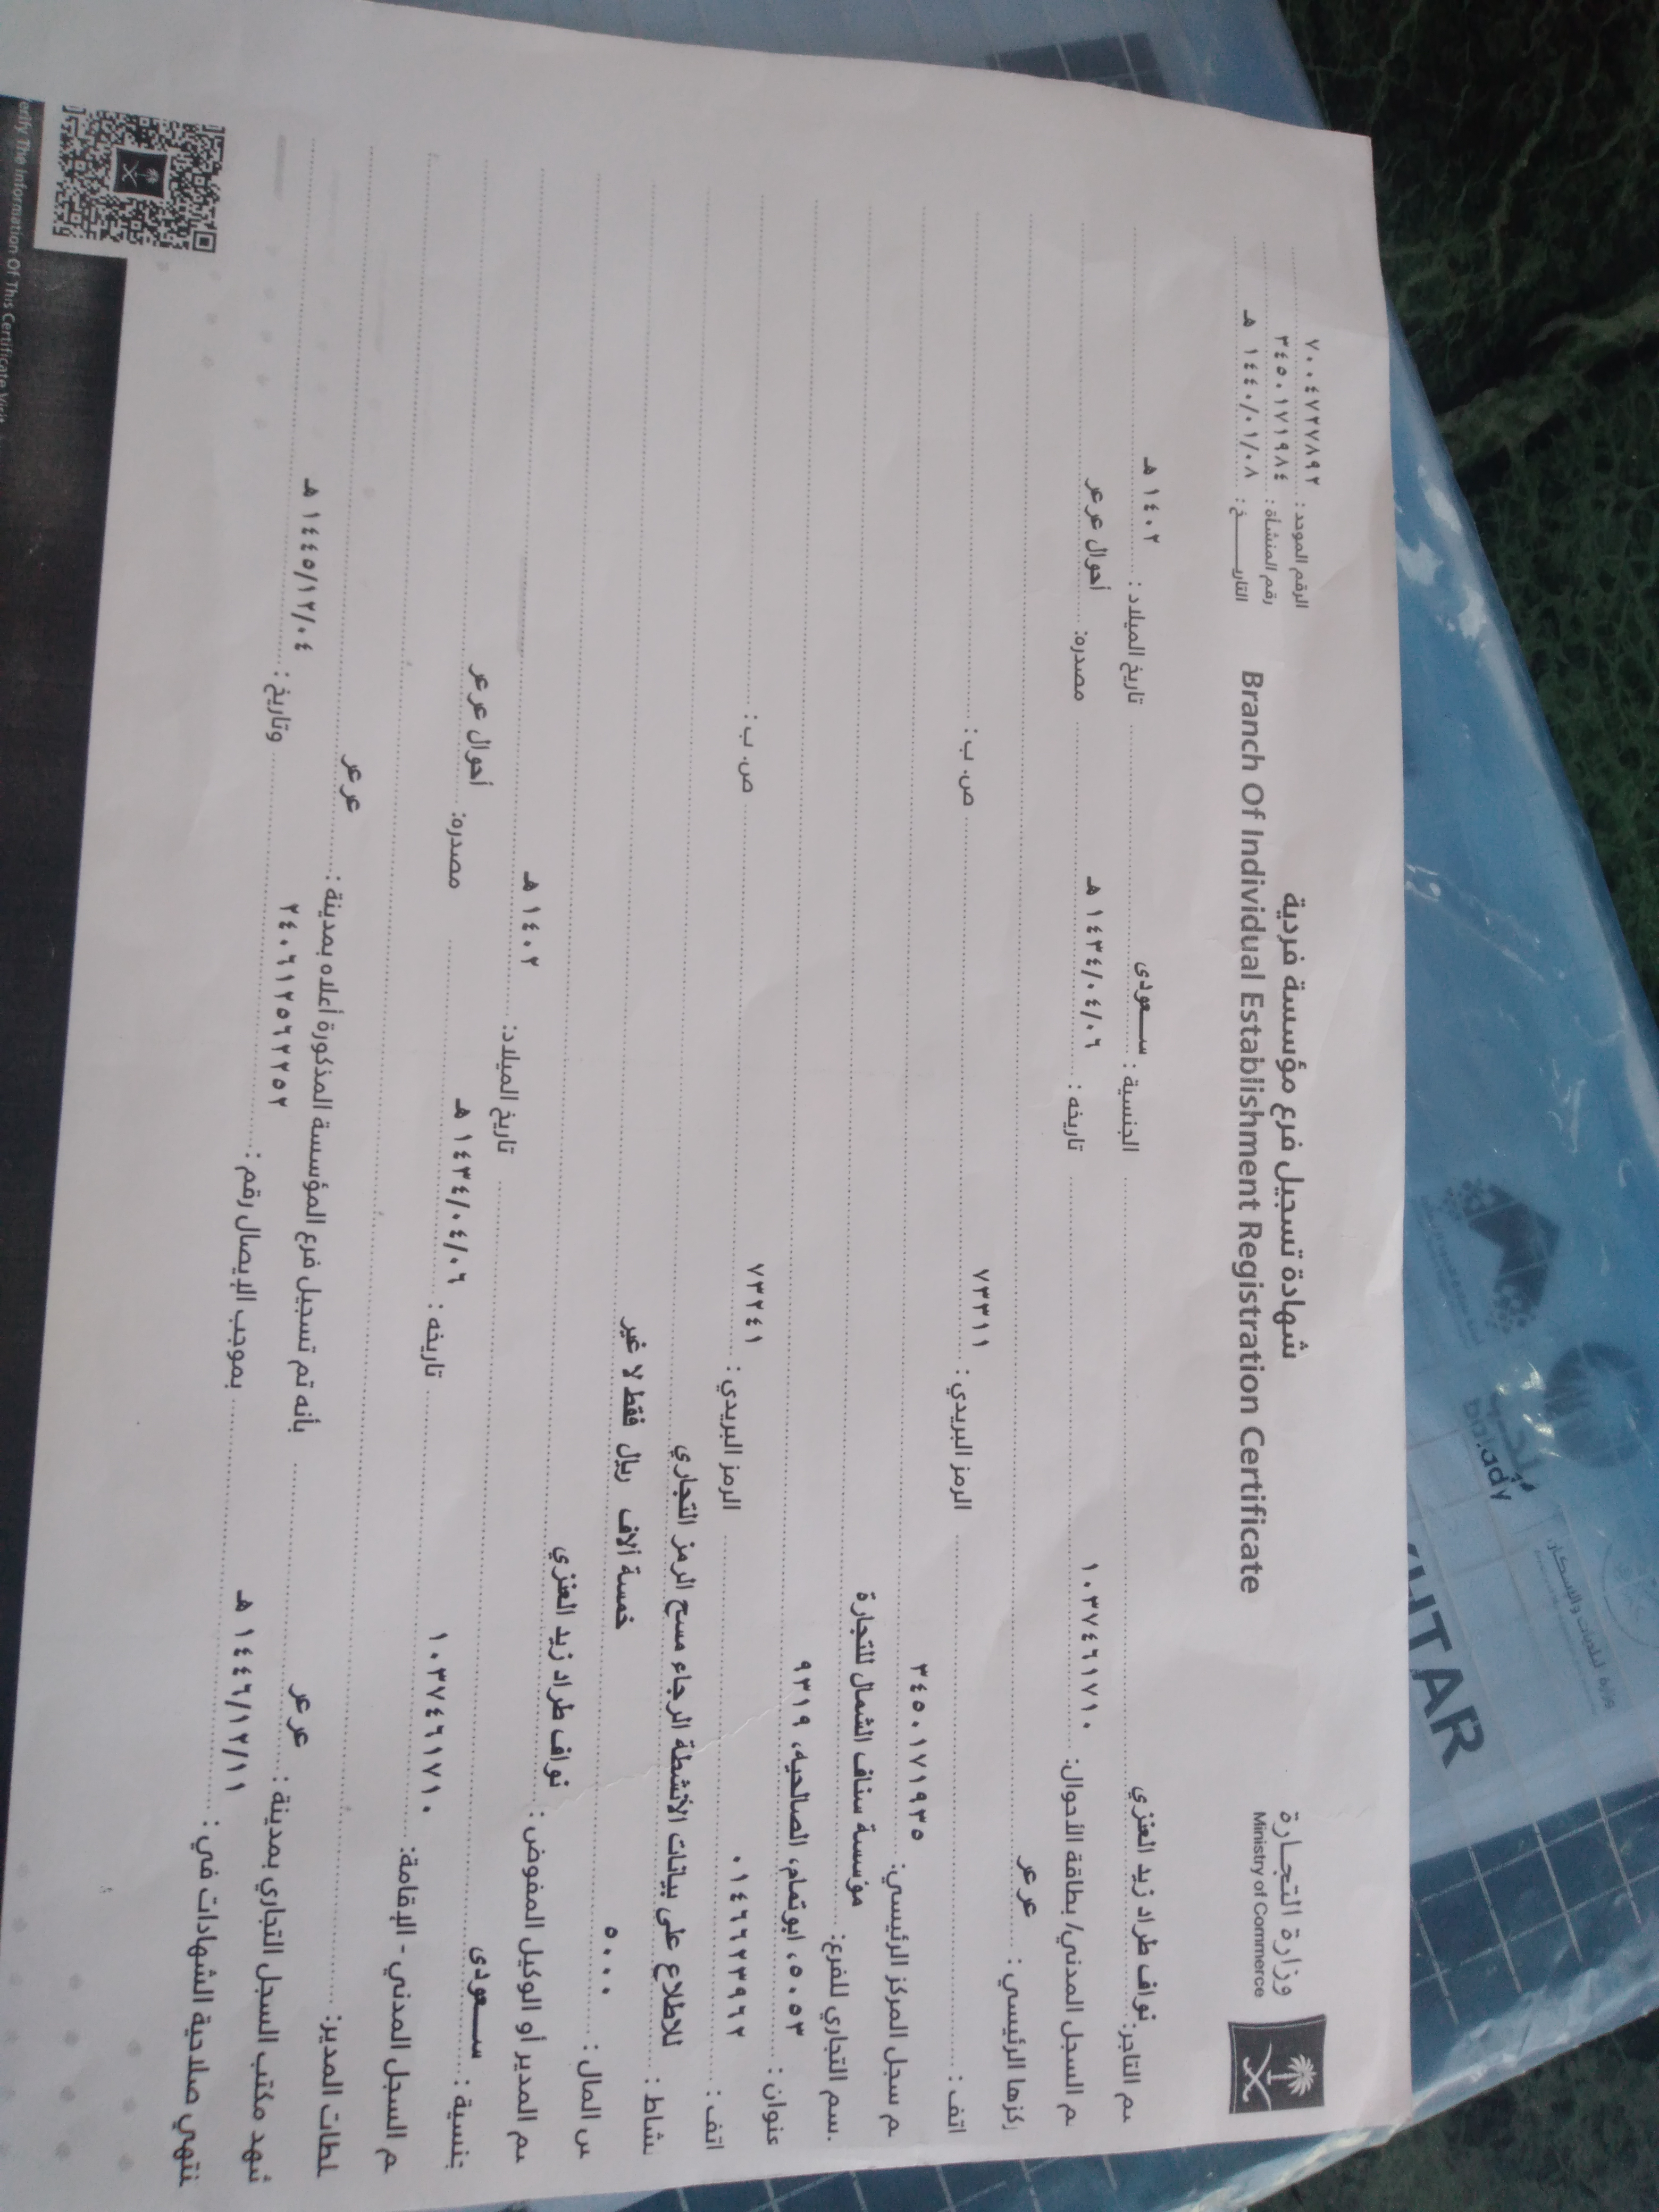 وزارة التجارة
Ministry of Commerce
شهادة تسجيل فرع مؤسسة فردية
Branch Of Individual Establishment Registration Certificate
الرقم الموحد : ٧٠٠٤٧٢٧٨٩٢
رقم المنشأة : ٣٤٥٠١٧١٩٨٤
التاريـــخ : ١٤٤٠/٠١/٠٨ هـ
سم التاجر: نواف طراد زيد العنزي الجنسية : سعودى تاريخ الميلاد : ١٤٠٢ هـ
م السجل المدني/ بطاقة الأحوال: ١٠٣٧٤٦١٧١٠ تاريخه : ١٤٣٤/٠٤/٠٦ هـ مصدره: أحوال عرعر
ركزها الرئيسي : عرعر
اتف : الرمز البريدي : ٧٣٣١١ ص. ب :
م سجل المركز الرئيسي: ٣٤٥٠١٧١٩٣٥
سم التجاري للفرع: مؤسسة سناف الشمال للتجارة
عنوان : ٥٠٥٣، ابوتمام، الصالحيه، ٩٣١٩
اتف : ٠١٤٦٦٢٣٩٦٢ الرمز البريدي : ٧٣٢٤١ ص. ب :
شاط : للاطلاع على بيانات الأنشطة الرجاء مسح الرمز التجاري
س المال : ٥٠٠٠ خمسة آلاف ريال فقط لا غير
سم المدير أو الوكيل المفوض : نواف طراد زيد العنزي
نسية : سعودى تاريخ الميلاد: ١٤٠٢ هـ
م السجل المدني - الإقامة: ١٠٣٧٤٦١٧١٠ تاريخه : ١٤٣٤/٠٤/٠٦ هـ مصدره: أحوال عرعر
لطات المدير:
شهد مكتب السجل التجاري بمدينة : عرعر بأنه تم تسجيل فرع المؤسسة المذكورة أعلاه بمدينة : عرعر
نتهي صلاحية الشهادات في : ١٤٤٦/١٢/١١ هـ بموجب الإيصال رقم : ٢٤٠٦١٢٥٦٢٢٥٢ وتاريخ : ١٤٤٥/١٢/٠٤ هـ
erify The Information Of This Certificate Visit
بلدي
Balady
وزارة البلديات والإسكان
HTAR